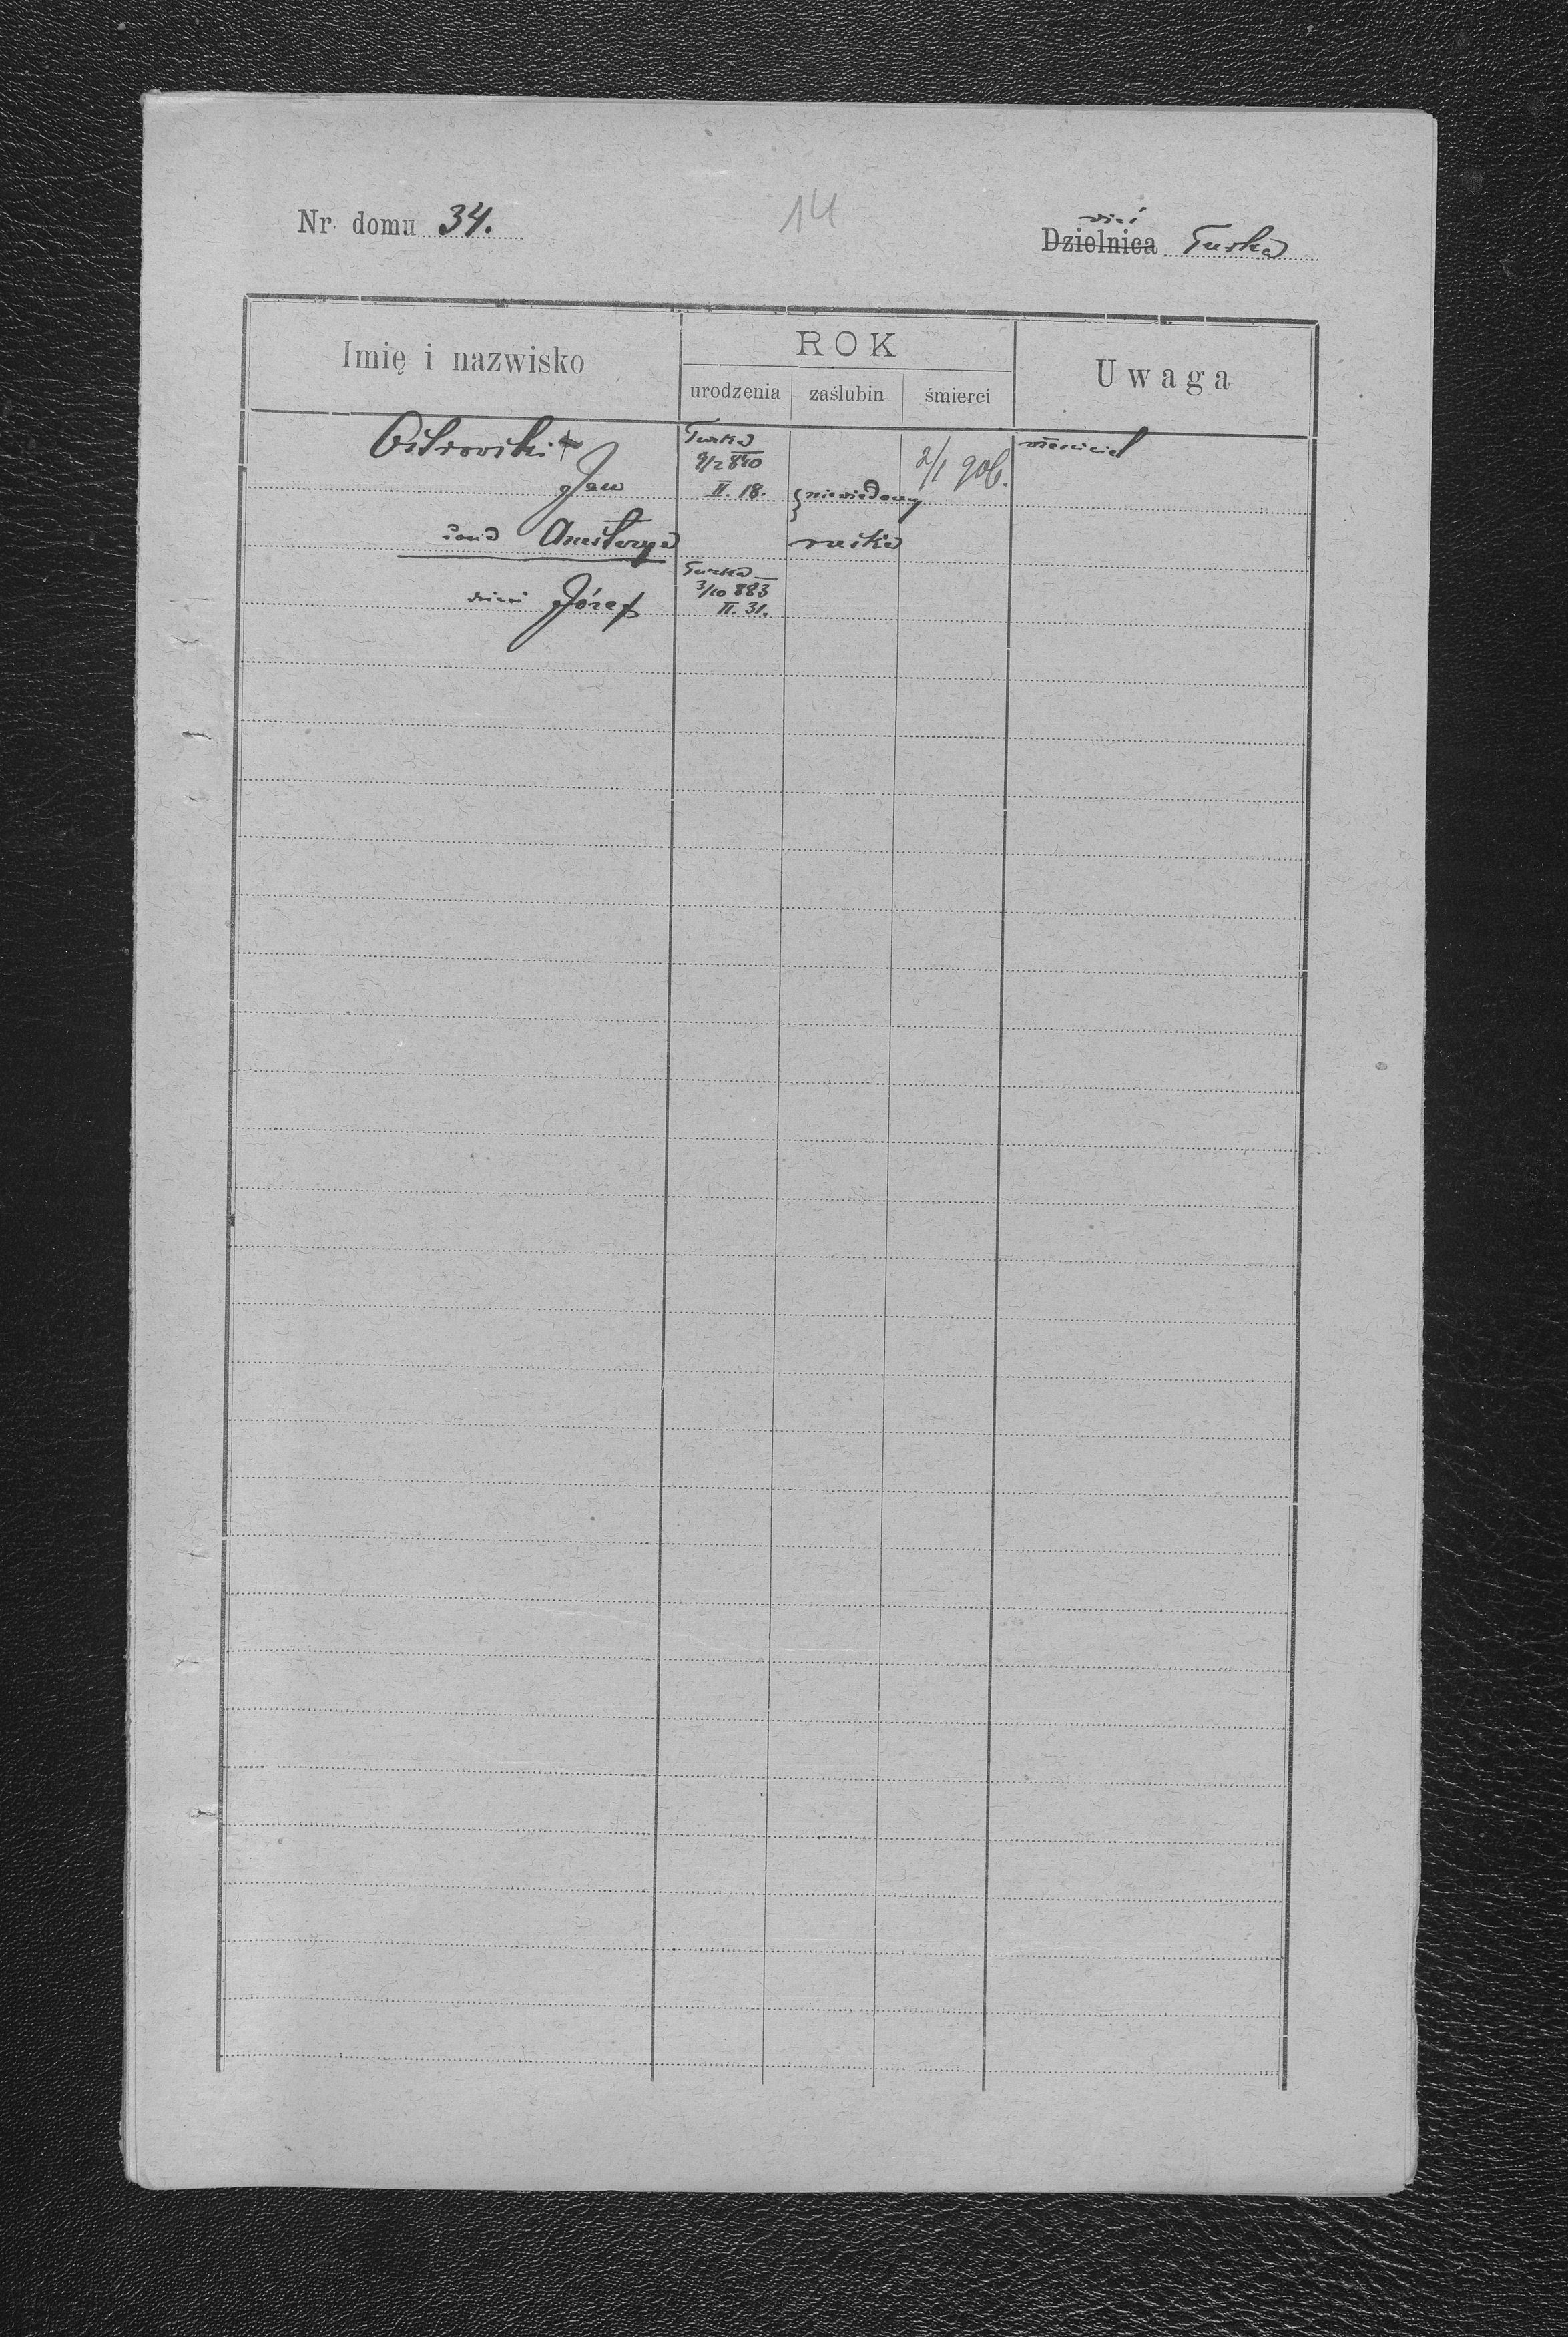 Nr. domu 34.
14
wieś
Dzielnica Turka
Imię i nazwisko
ROK
urodzenia
zaślubin
śmierci
Uwaga
Ostrowski
Jan
Turka
9/2 840
II. 18.
niewiadomy
2/1 906.
właściciel
żona Anastazya
ruska
dzieci Józef
Turka
3/10 883
II. 31.